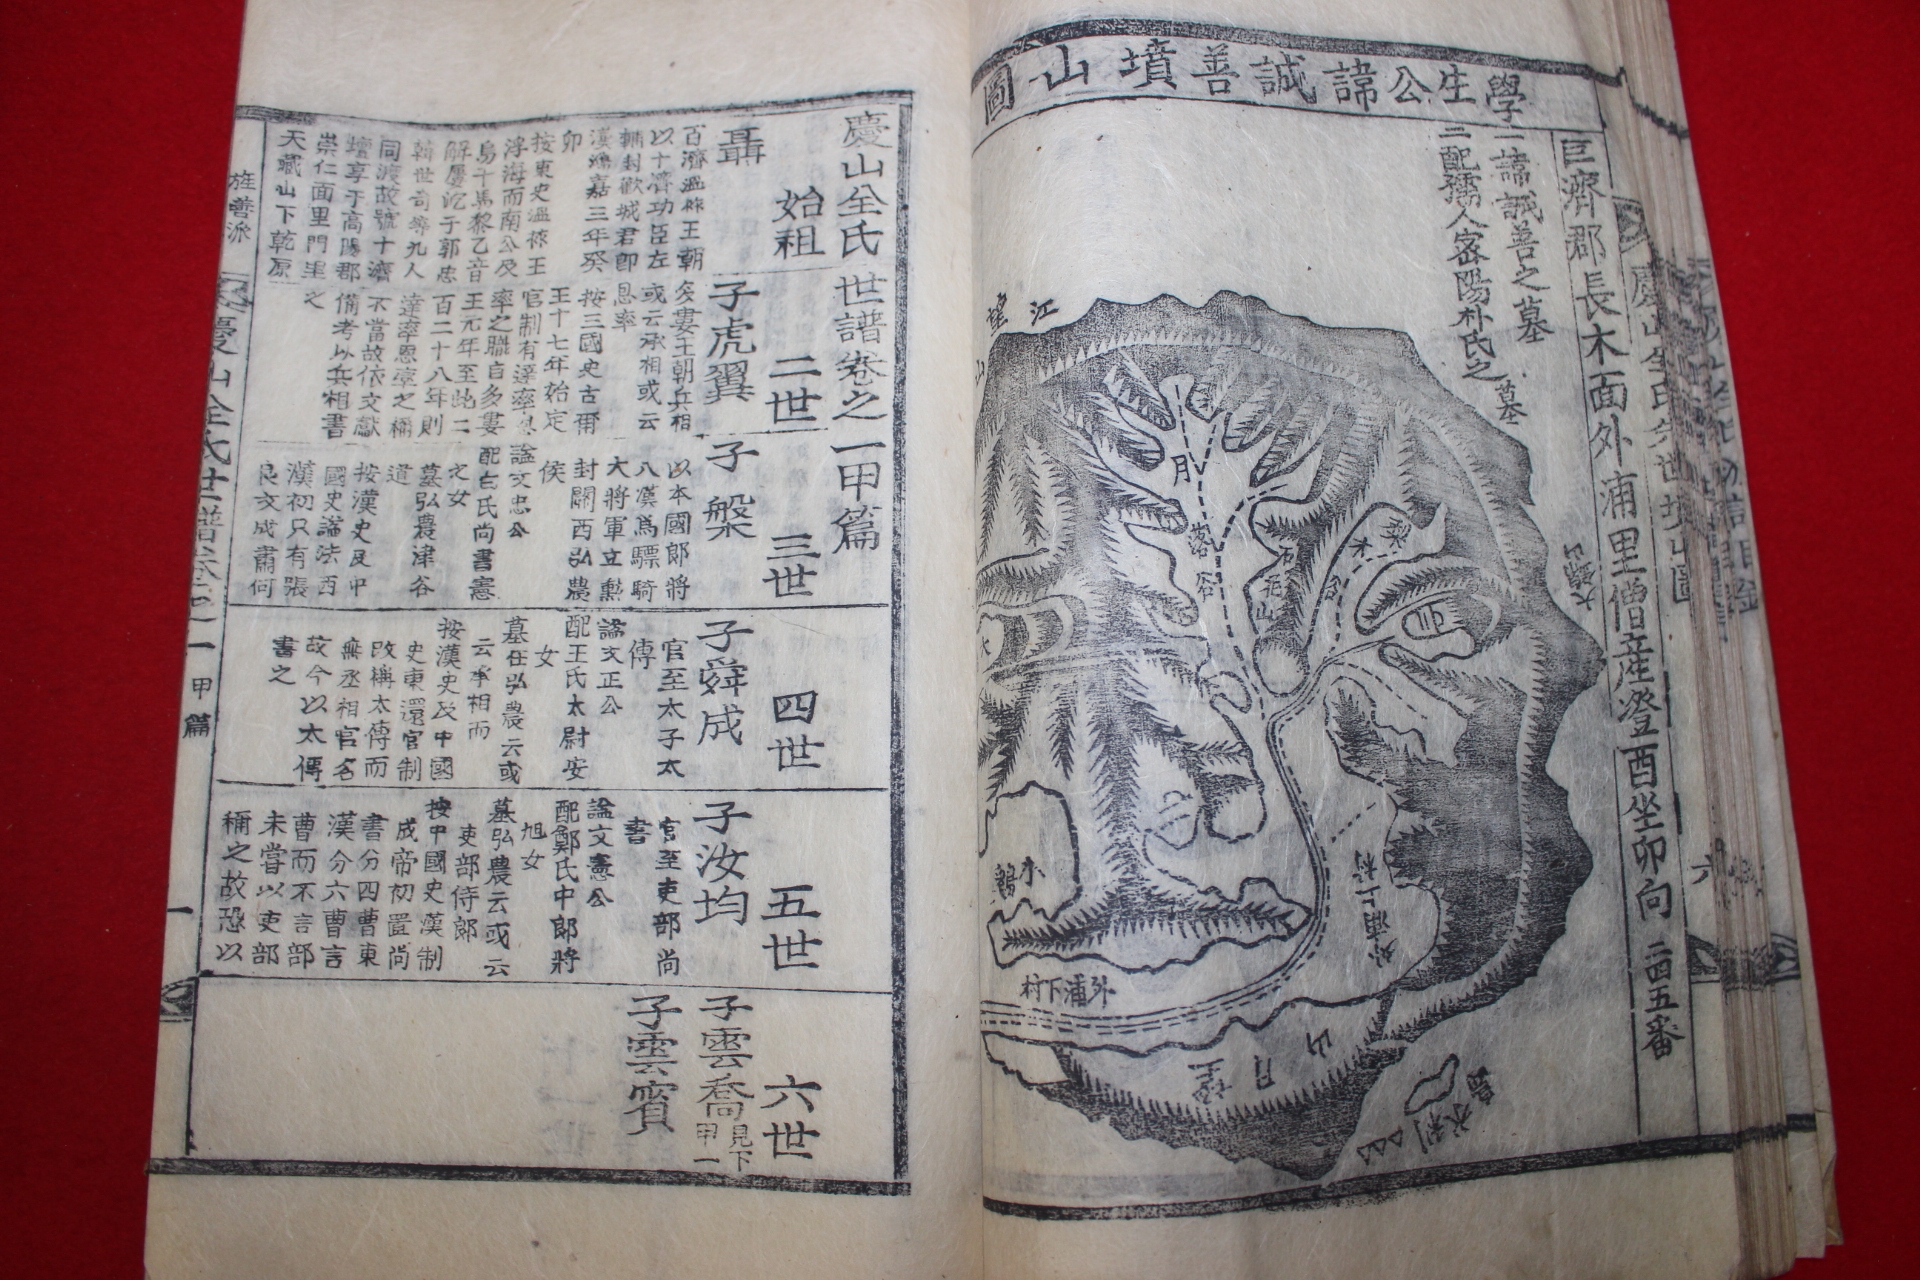 學生公諱誠善墳山圖
巨濟郡長木面外浦里僧産澄酉坐卯向 二四五番
諱誠善之墓
二配孺人密陽朴氏之墓
江
望
山
月
落
谷
木
谷
外浦上村
外浦下村
望月山
慶山全氏世譜卷之一甲篇
始祖
聶
百濟溫祚王朝
以十濟功臣左
輔封歡城君卽
漢鴻嘉三年癸
卯
按東史溫祚王
浮海而南公及
烏干馬黎乙音
解婁
韓世奇等九人
同渡故號十濟
壇享于高陽郡
崇仁面里門里
天藏山下乾原
二世
子虎翼
多婁王朝兵相
或云承相或云
恩率
按三國史古爾
王十七年始定
官制有達率恩
率之職自多婁
王元年至此二
百二十八年則
達率恩率之稱
不當故依文獻
備考以兵相書
之
三世
子槃
以本國郎將
入漢爲驃騎
大將軍立勲
封關西弘農
侯
諡文忠公
配白氏尚書憲
之女
墓弘農津谷
道
按漢史及中
國史諡法西
漢初只有張
良文成蕭何
四世
子舜成
官至太子太
傅
諡文正公
配王氏太尉安
女
墓在弘農云或
云承相而
按漢史及中國
史東還官制
改稱太傅而
無丞相官名
故今以太傅
書之
五世
子汝均
官至吏部尚
書
諡文憲公
配鄭氏中郎將
旭女
墓弘農云或云
吏部侍郎
按中國史漢制
成帝初置尚
書分四曹東
漢分六曹言
曹而不言部
未嘗以吏部
稱之故恐以
六世
子雲喬
見下
甲一
子雲賓
旌善派
慶山全氏世譜卷之一
甲篇
一